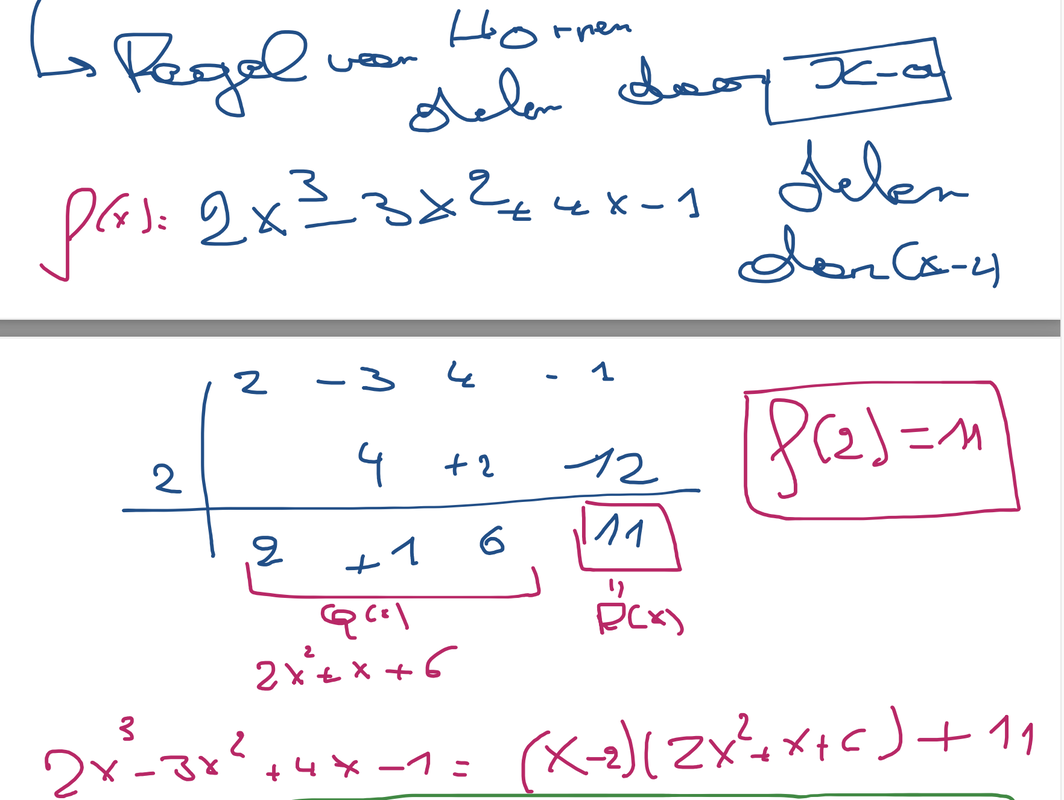 ↳ Regel van Horner
delen door x-a
f(x): 2x³ - 3x² + 4x - 1 delen
door (x-2)
2 -3 4 -1
2 4 +2 12
2 +1 6 11
Q(x) = R(x)
2x² + x + 6
f(2) = 11
2x³ - 3x² + 4x - 1 = (x-2)(2x² + x + 6) + 11